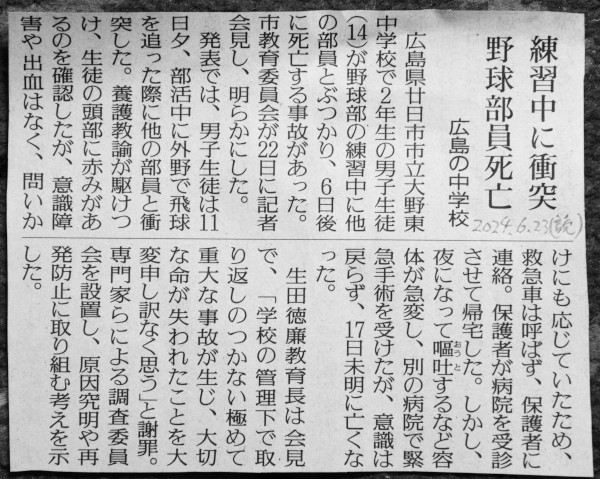 練習中に衝突
野球部員死亡
広島の中学校
2024.6.23(読)
広島県廿日市市立大野東
中学校で2年生の男子生徒
(14)が野球部の練習中に他
の部員とぶつかり、6日後
に死亡する事故があった。
市教育委員会が22日に記者
会見し、明らかにした。
発表では、男子生徒は11
日夕、部活中に外野で飛球
を追った際に他の部員と衝
突した。養護教諭が駆けつ
け、生徒の頭部に赤みがあ
るのを確認したが、意識障
害や出血はなく、問いか
けにも応じていたため、
救急車は呼ばず、保護者に
連絡。保護者が病院を受診
させて帰宅した。しかし、
夜になって嘔吐するなど容
おうと
体が急変し、別の病院で緊
急手術を受けたが、意識は
戻らず、17日未明に亡くな
った。
生田徳廉教育長は会見
で、「学校の管理下で取
り返しのつかない極めて
重大な事故が生じ、大切
な命が失われたことを大
変申し訳なく思う」と謝罪。
専門家らによる調査委員
会を設置し、原因究明や再
発防止に取り組む考えを示
した。